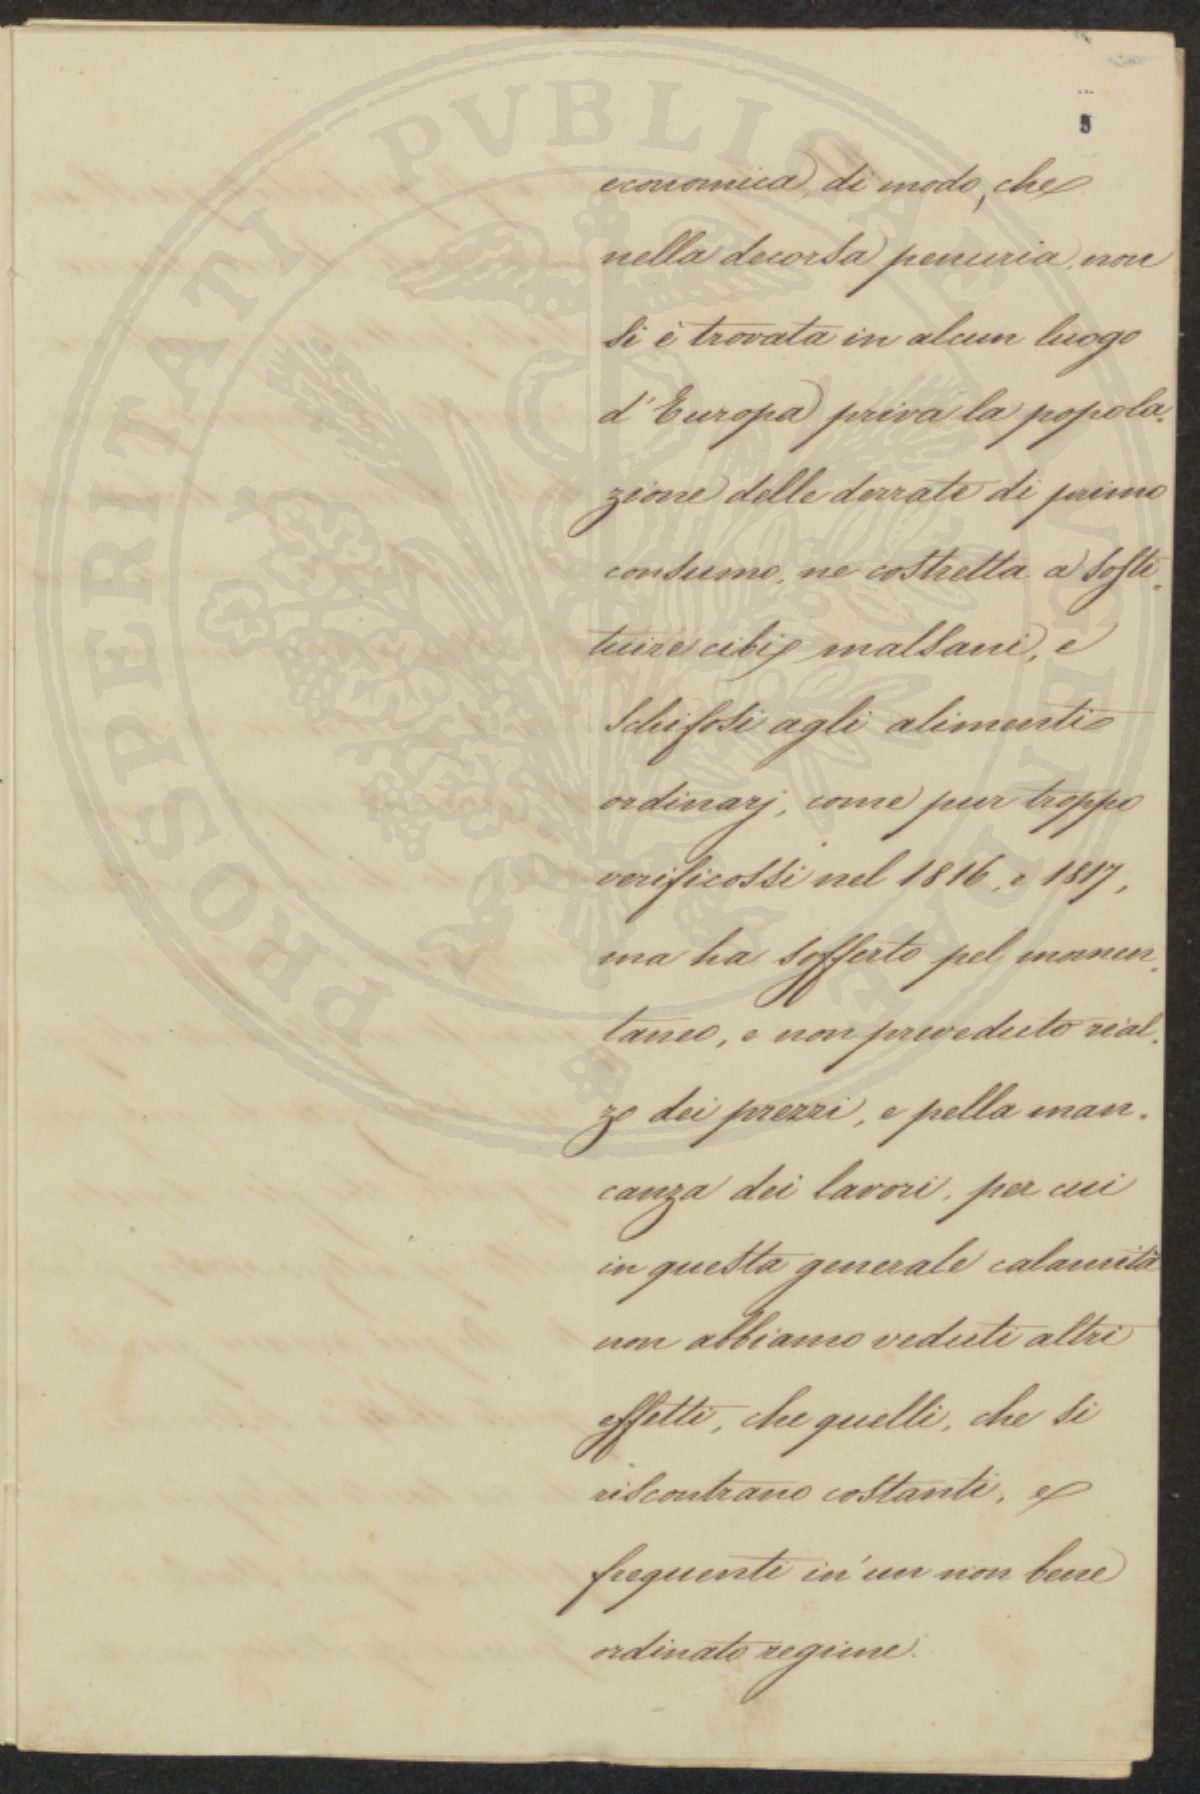 PROSPERITATI PVBLICAE AVGENDAE
5
economica, di modo, che
nella decorsa penuria, non
si è trovata in alcun luogo
d'Europa priva la popola-
zione delle derrate di primo
consumo, ne costretta a sosti-
tuire cibi malsani, e
schifosi agli alimenti
ordinarj, come pur troppo
verificossi nel 1816, e 1817,
ma ha sofferto pel momen-
taneo, e non preveduto rial-
zo dei prezzi, e pella man-
canza dei lavori, per cui
in questa generale calamità
non abbiamo veduti altri
effetti, che quelli, che si
riscontrano costanti, e
frequenti in'un non bene
ordinato regime.